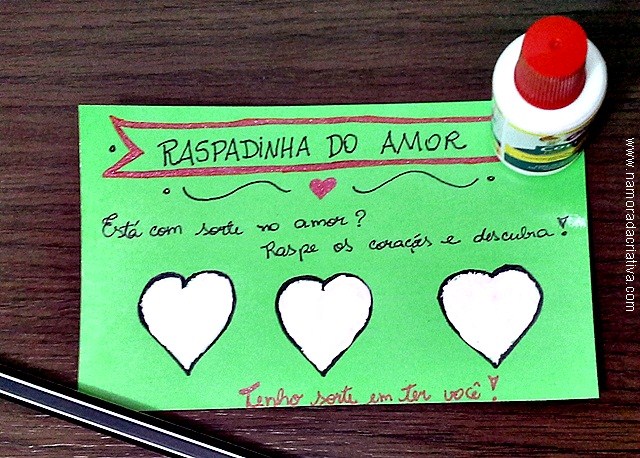 RASPADINHA DO AMOR
Está com sorte no amor?
Raspe os corações e descubra!
Tenho sorte em ter você!
www.namoradacriativa.com